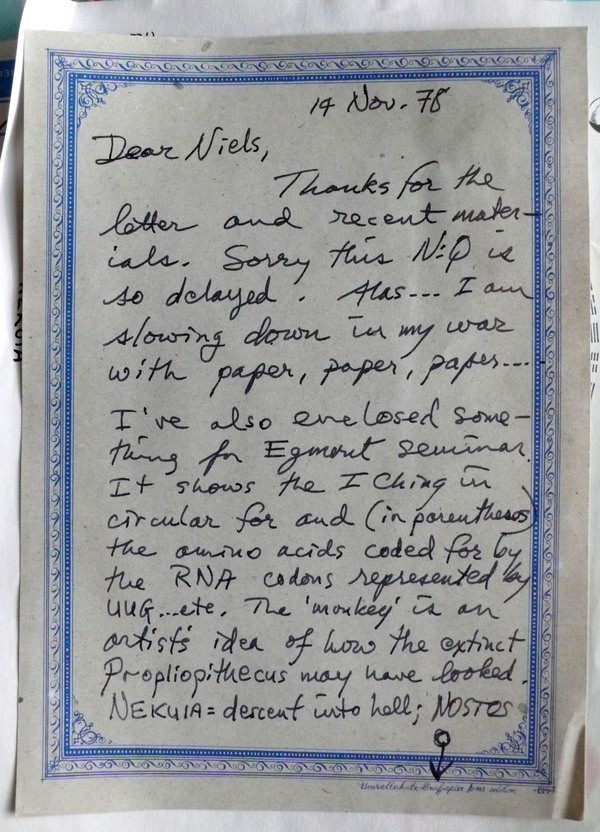 14 Nov. 78
Dear Niels,
Thanks for the
letter and recent mater-
ials. Sorry this N:Q is
so delayed. Alas--- I am
slowing down in my war
with paper, paper, paper---
I've also enclosed some-
thing for Egmont seminar.
It shows the I Ching in
circular for and (in parentheses)
the amino acids coded for by
the RNA codons represented by
UUG...etc. The 'monkey' is an
artist's idea of how the extinct
Propliopithecus may have looked.
NEKUIA = descent into hell; NOSTOS
NEKUIA